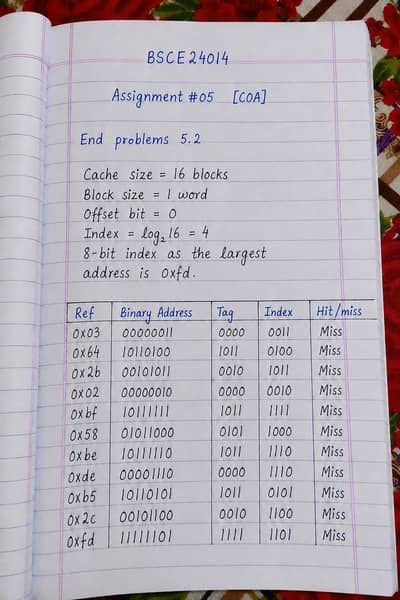 BSCE24014
Assignment #05 [COA]
End problems 5.2
Cache size = 16 blocks
Block size = 1 word
Offset bit = 0
Index = log₂16 = 4
8-bit index as the largest
address is 0xfd.
Ref Binary Address Tag Index Hit/miss
0x03 00000011 0000 0011 Miss
0x64 10110100 1011 0100 Miss
0x2b 00101011 0010 1011 Miss
0x02 00000010 0000 0010 Miss
0xbf 10111111 1011 1111 Miss
0x58 01011000 0101 1000 Miss
0xbe 10111110 1011 1110 Miss
0xde 00001110 0000 1110 Miss
0xb5 10110101 1011 0101 Miss
0x2c 00101100 0010 1100 Miss
0xfd 11111101 1111 1101 Miss